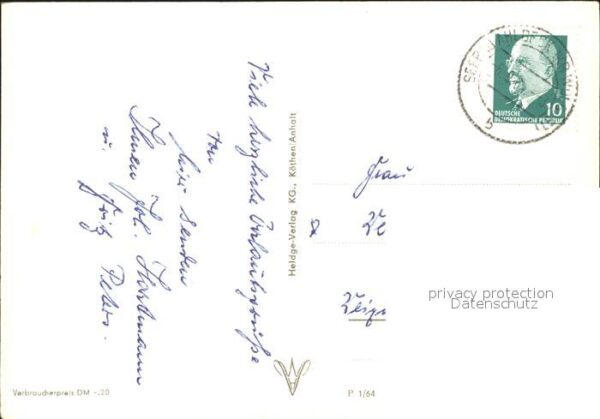 Viele herzliche Urlaubsgrüße
von
hier senden
Ihnen Joh. Hartmann
u. Fritz Peters.
Heldge-Verlag KG., Köthen/Anhalt
10
DEUTSCHE
DEMOKRATISCHE REPUBLIK
Frau
Leipz
privacy protection
Datenschutz
Verbraucherpreis DM -.20
P 1/64